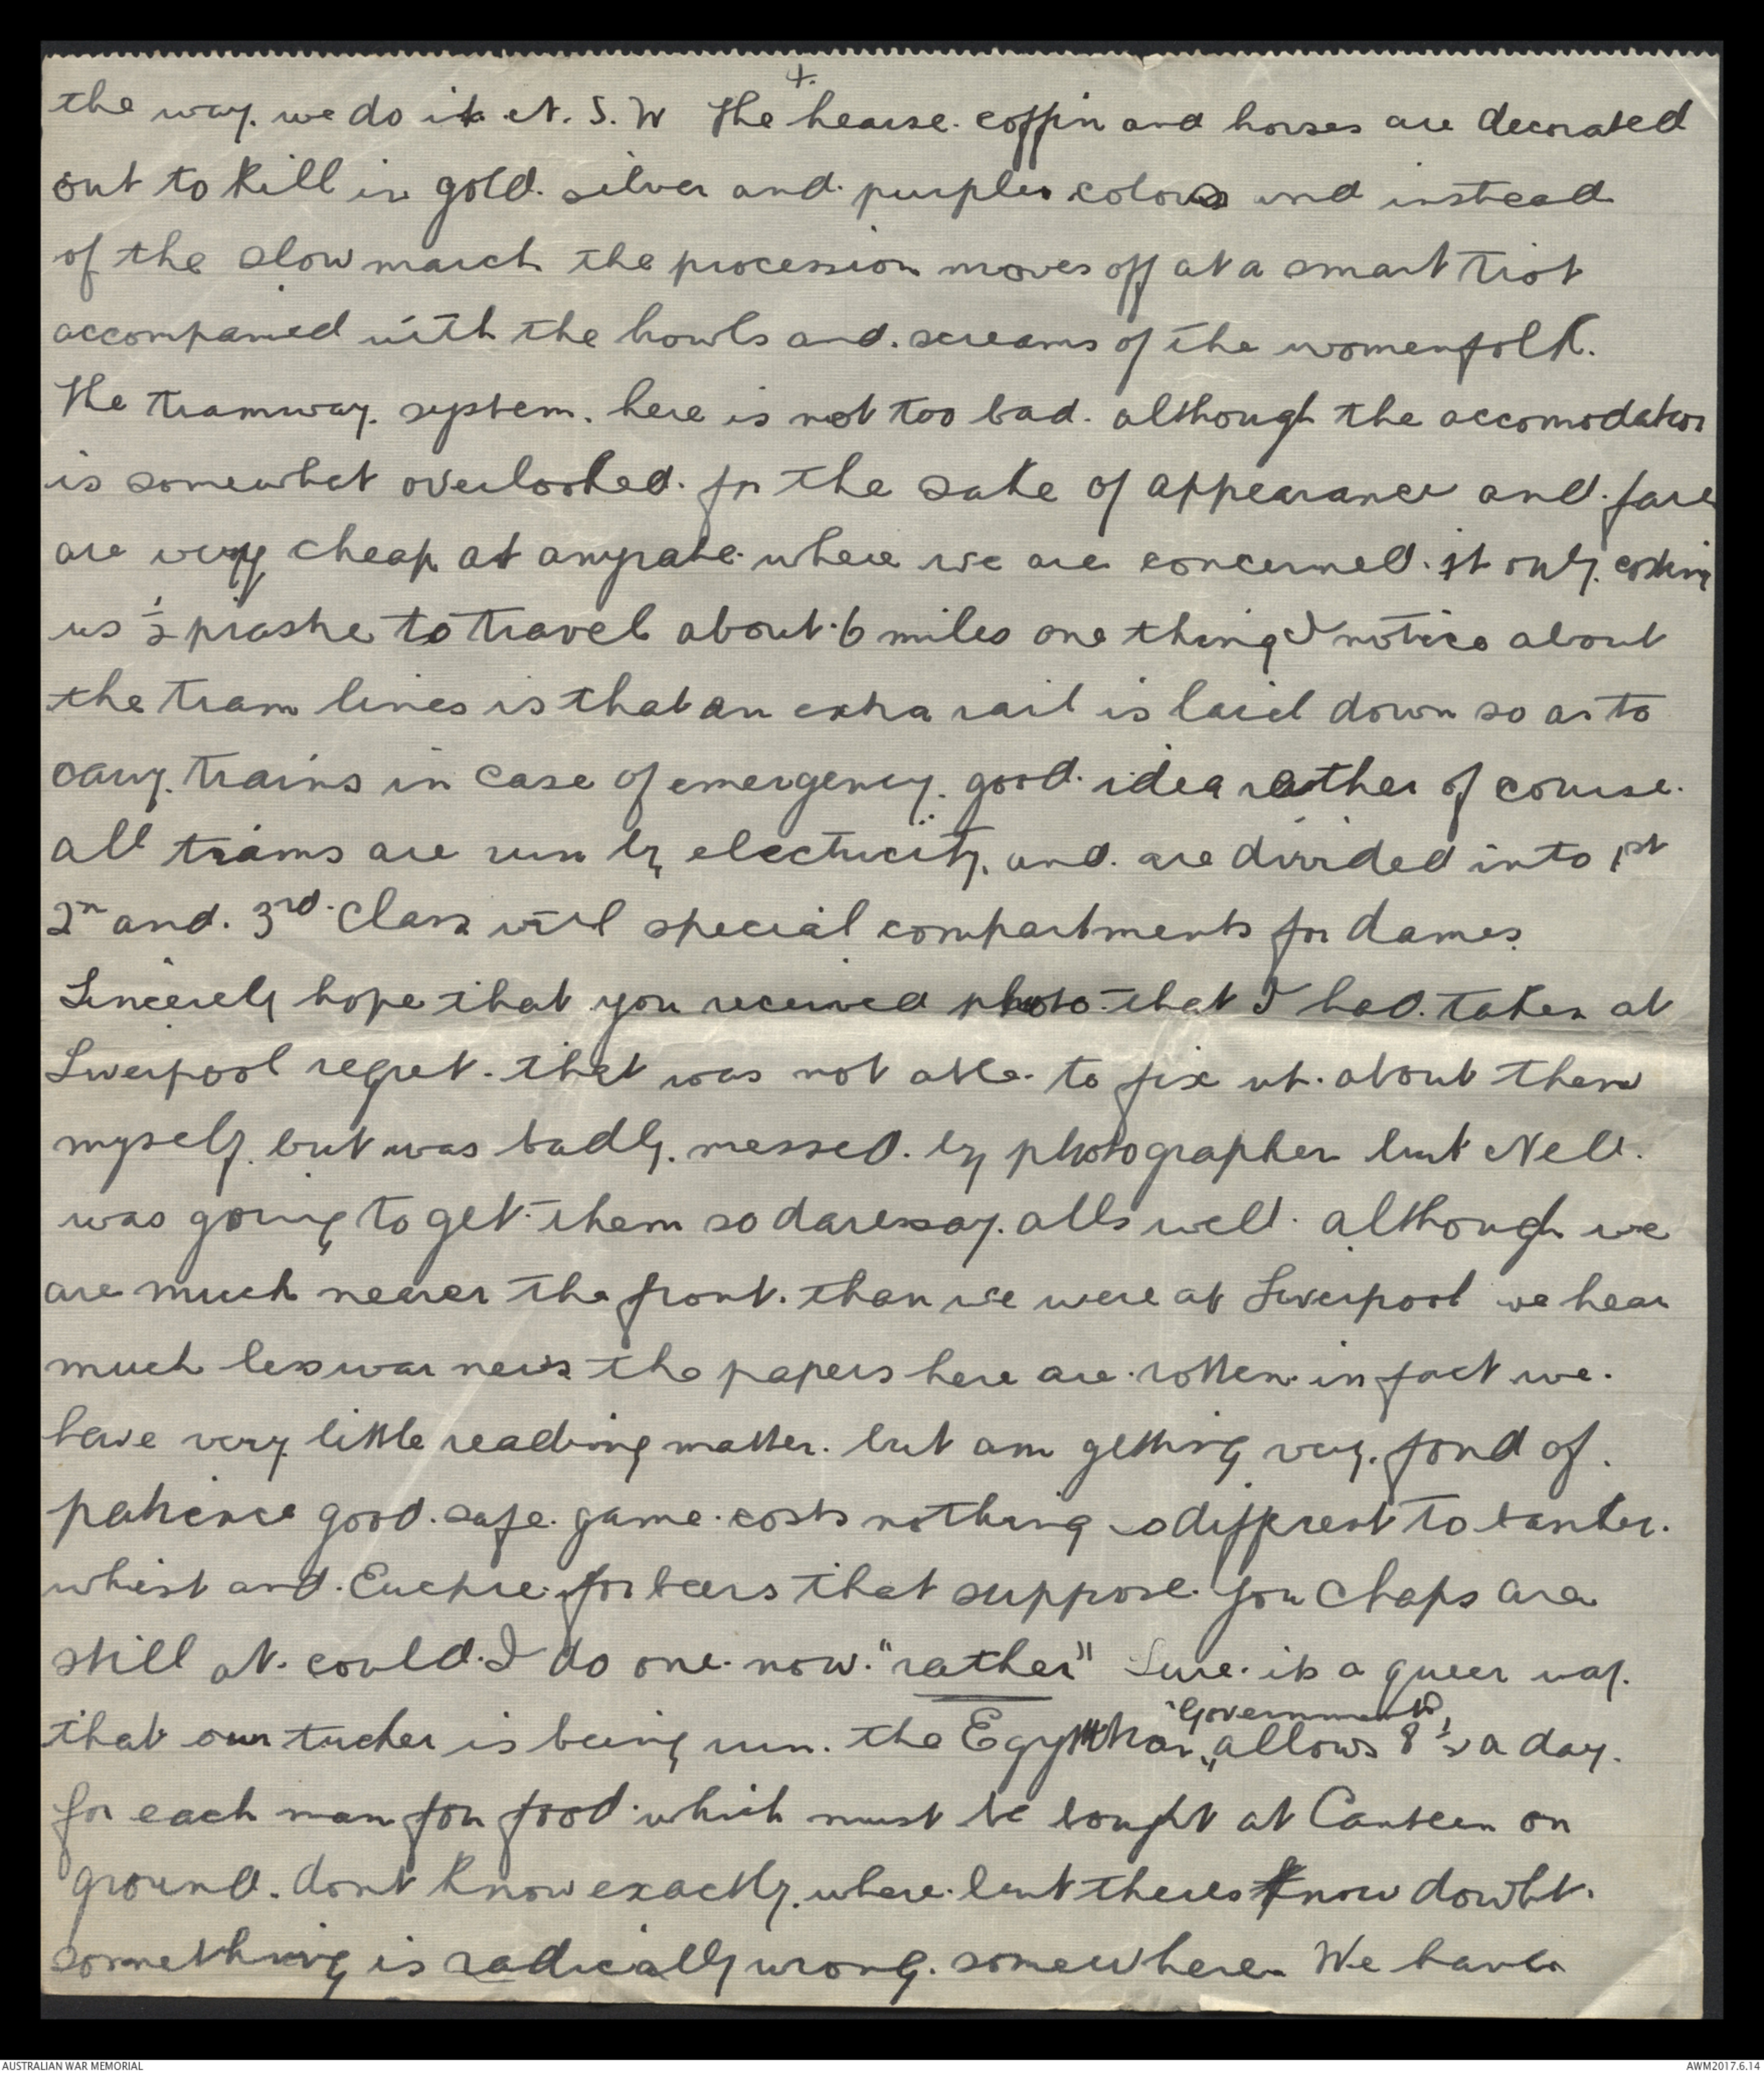 the way. we do it N. S. W + The hearse. coffin and horses are decorated
out to kill in gold. silver and. purples colors and instead
of the slow march the procession moves off at a smart trot
accompanied with the howls and. screams of the womenfolk.
The tramway. system. here is not too bad. although the accomodation
is somewhat overlooked. for the sake of appearance and. fares
are very cheap at anyrate. where we are concerned. it only. costing
us ½ piastre to travel about 6 miles one thing I notice about
the tram lines is that an extra rail is laid down so as to
carry. trains in case of emergency. good. idea rather of course.
all trams are run by electricity. and. are divided into 1st
2n and. 3rd. Class with special compartments for dames.
Sincerely hope that you received photo. that I had. taken at
Liverpool regret. that was not able. to fix up. about them
myself. but was badly. messed. by photographer but Nell.
was going to get. them so daresay. alls well. although we
are much nearer the front. than we were at Liverpool we hear
much less war news the papers here are. rotten. in fact we.
have very little reading matter. but am getting very. fond of.
patience good. safe. game. costs nothing so different to banker.
whist and. Euchre. for beers that suppose. you chaps are
still at. could. I do one. now. "rather" Sure. its a queer way.
that our tucker is being run. the Egyptian "Government" allows 8½ a day.
for each man for food. which must be bought at Canteen on
ground. dont know exactly. where. but theres know doubt.
something is radically wrong. somewhere. We have